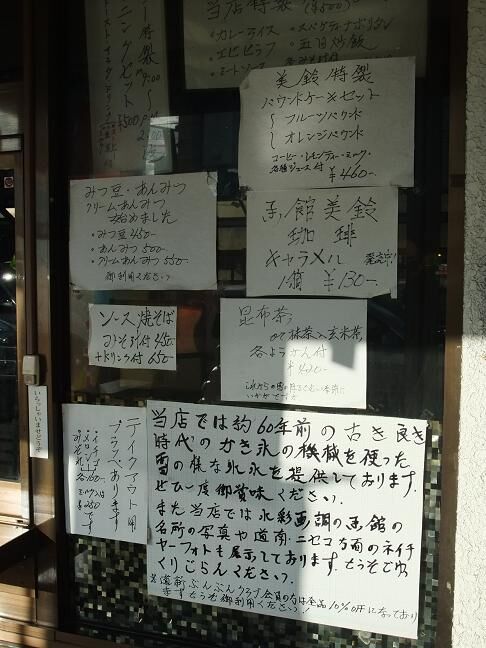 特製
モーニングセット
9:00〜
当店特製
・カレーライス ・スパゲティナポリタン
・エビピラフ ・五目炒飯
・ミートソース
美鈴特製
パウンドケーキセット
フルーツパウンド
オレンジパウンド
コーヒー・レモンティー・ミルク・
各種ジュース付
¥460-
みつ豆・あんみつ
クリームあんみつ
始めました
・みつ豆 450-
・あんみつ 500-
・クリームあんみつ 550-
御利用ください
函館美鈴
珈琲
キャラメル
発売中!
1箱 ¥130-
ソース焼そば
みそ汁付 450-
+ドリンク付 650-
昆布茶
抹茶入玄米茶
各ようかん付
いかがですか
いらっしゃいませどうぞ
テイクアウト用
フラッペあります
・イチゴ
・メロン
・みぞれ
各100-
ミルクは
¥250です
当店では約60年前の古き良き
時代のかき氷の機械を使った
雪の様な氷を提供しております.
ぜひ一度御賞味ください.
また当店では水彩画調の函館の
名所の写真や道南・ニセコ方面のネイチ
ャーフォトも展示しております. どうぞごゆっ
くりごらんください.
※道新ぶんぶんクラブ会員の方は全品10%offになっており
ます. どうぞ御利用ください!